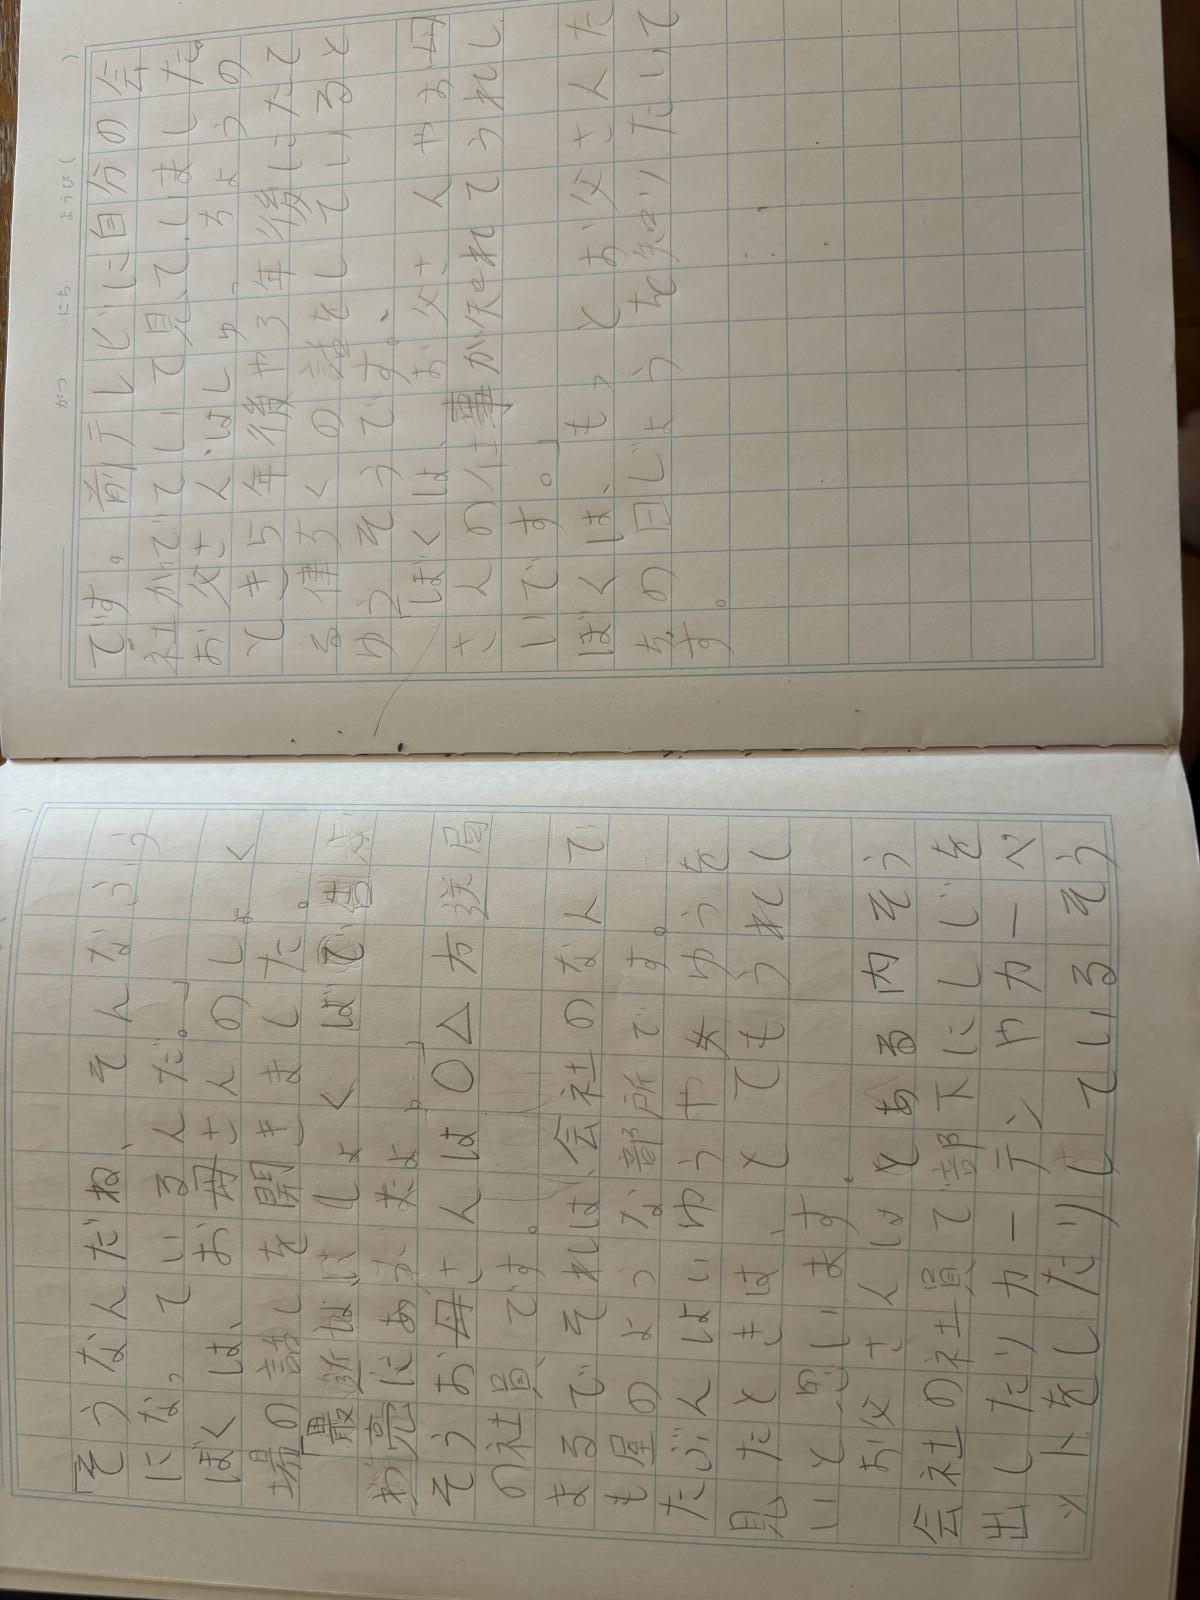 がつ にち ようび( )
「そうなんだね、そんなふう
になっているんだ。」
ぼくは、お母さんのしょく
場の話しを開きました。
「最近はしょくばで
よ。」
そうお母さんは○△方送局
の社員です。
まるでそれは会社のなんで
も屋のような部所です。
たぶんはいゆうや女ゆうを
見たときは、とてもうれし
いと思います。
お父さんはとある内そう
会社の社員で部下にしじを
出したりカーテンやカーペ
ットをしたりしているそう
です。前テレビに自分の会
社がでていて見ていました。
お父さんはしゅっちょうの
とき5年後や3年後にたて
る建ちくの話をしていると
ゆうそうです。
「ぼくは、お父さんやお母
さんの仕事が知れてうれし
いです。」
ぼくは、もっとお父さんた
ちの日じょうを知りたいで
す。